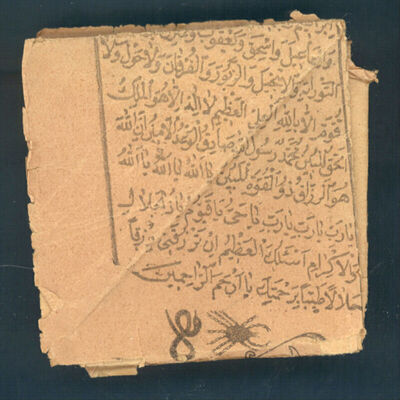 واسماعيل واسحق ويعقوب
التورية والانجيل والزبور والفرقان ولا حول ولا
قوة الا بالله العلي العظيم لا اله الا الله هو الملك
الحق المبين محمد رسول الله صادق الوعد الامين ان الله
هو الرزاق ذو القوة المتين يا الله يا الله يا الله
يا رب يا رب يا رب يا حي يا قيوم يا ذا الجلال
والاكرام اسئلك العظيم ان ترزقني رزقا
حلالا طيبا برحمتك يا ارحم الراحمين